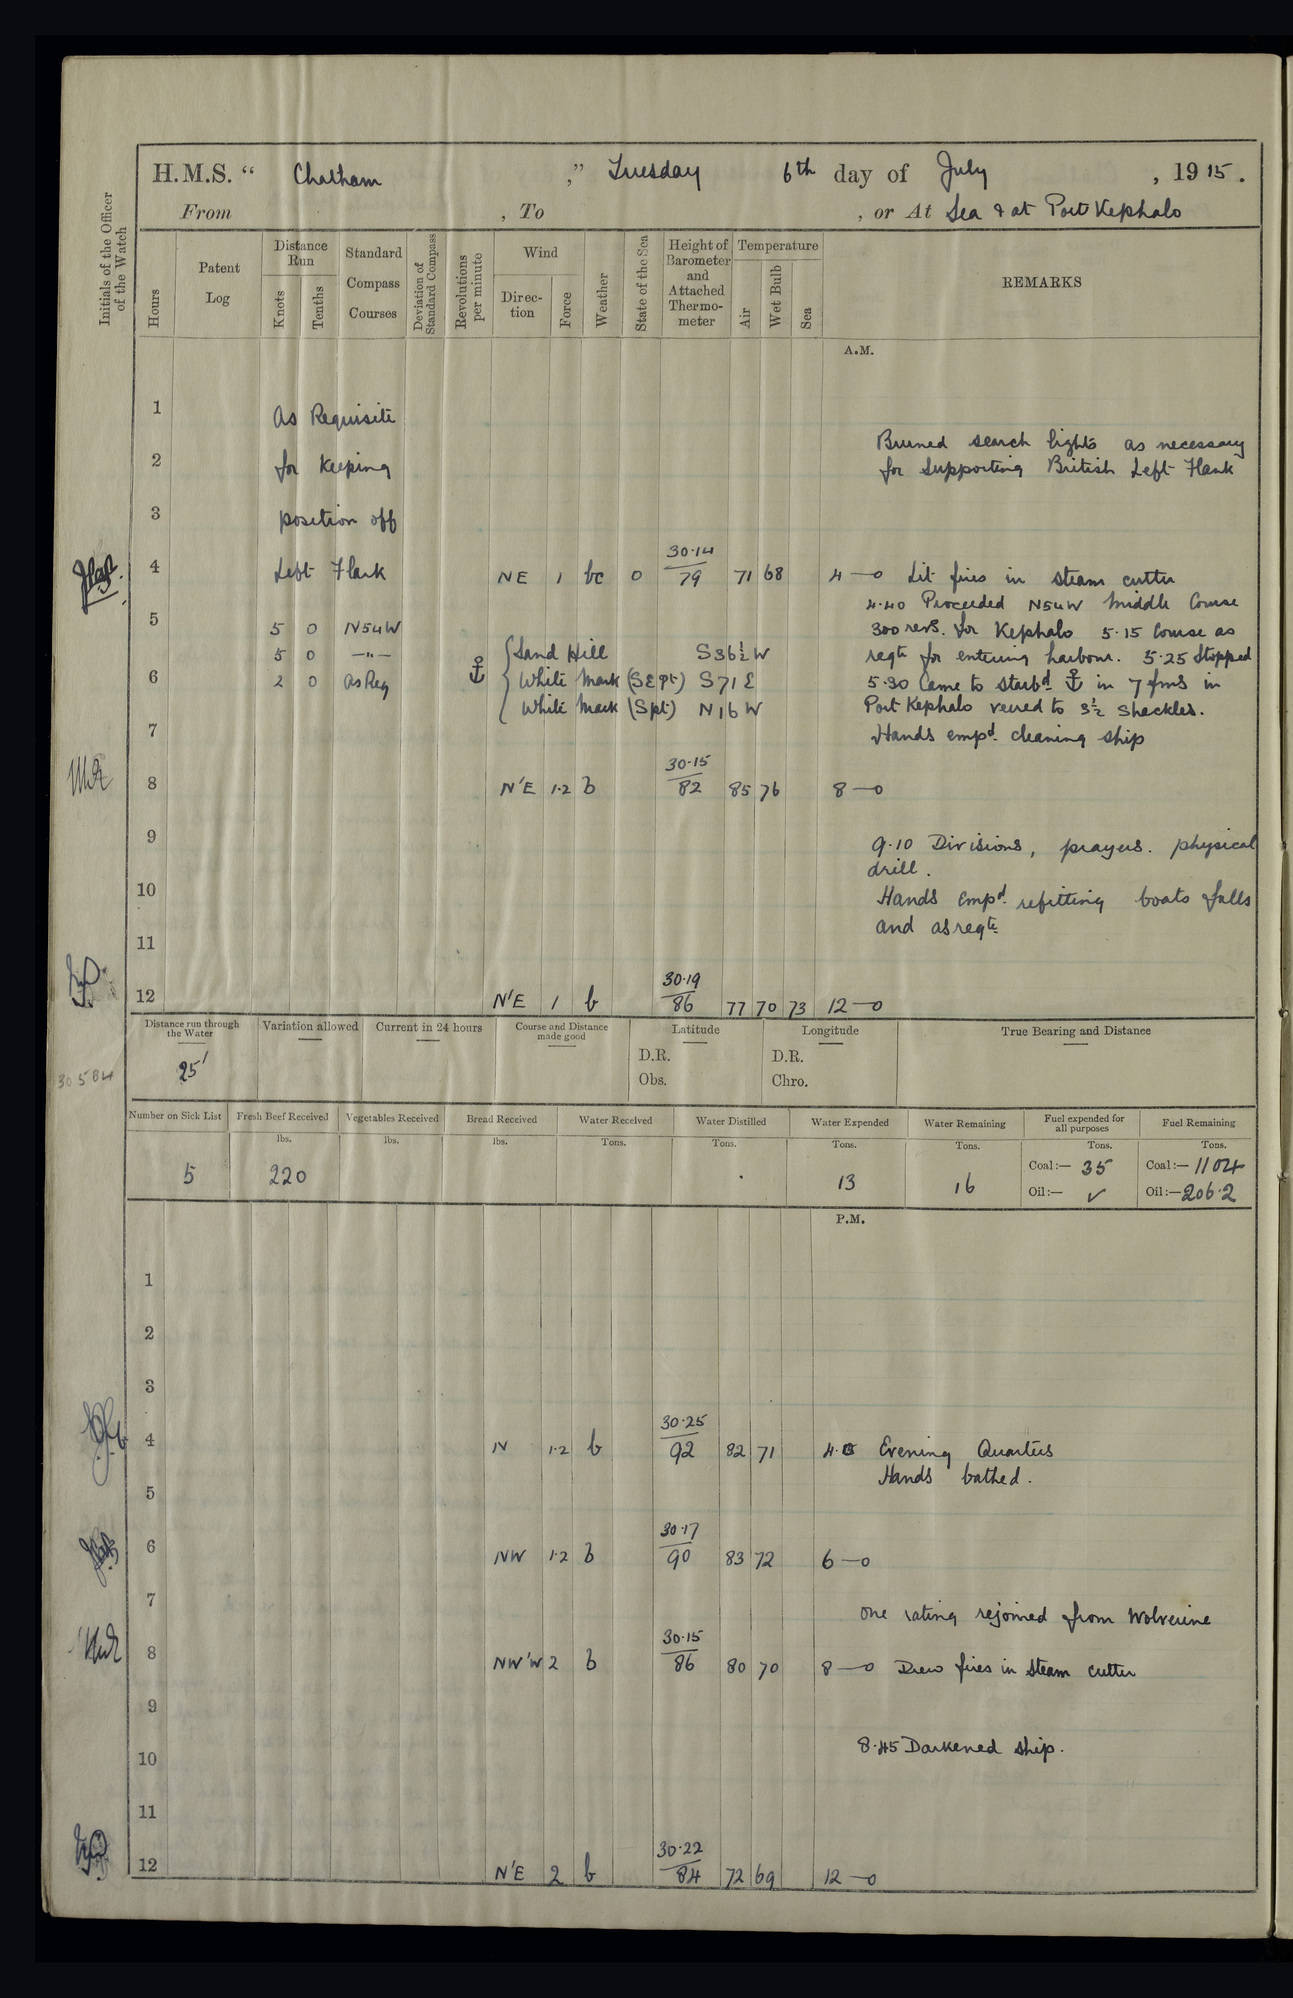 H.M.S. “ Chatham ,” Tuesday 6th day of July , 1915.
From , To , or At Sea & at Port Kephalo
Initials of the Officer of the Watch
Hours
Patent Log
Distance Run
Knots
Tenths
Standard Compass Courses
Deviation of Standard Compass
Revolutions per minute
Wind
Direc-tion
Force
Weather
State of the Sea
Height of Barometer and Attached Thermo-meter
Temperature
Air
Wet Bulb
Sea
REMARKS
A.M.
1 As Requisite
Burned search lights as necessary
2 for keeping
for supporting British Left Flank
3 position off
30.14
4 Left Flank NE 1 bc 0 79 71 68 4—0 Lit fires in steam cutter
4.40 Proceeded N54W Middle Course
5 5 0 N54W 300 revs. for Kephalo 5.15 Course as
5 0 —"— Sand Hill S36½W reqte for entering harbour. 5.25 Stopped
6 2 0 as Req ⚓ White Mark (SE Pt) S71E 5.30 Came to starbd ⚓ in 7 fms in
White Mark (S pt) N16W Port Kephalo veered to 3½ shackles.
7 Hands empd cleaning ship
30.15
8 N'E 1.2 b 82 85 76 8—0
9 9.10 Divisions, prayers. physical
drill.
10 Hands empd refitting boats falls
and as reqte
11
30.19
12 N'E 1 b 86 77 70 73 12—0
Distance run through the Water
Variation allowed
Current in 24 hours
Course and Distance made good
Latitude
Longitude
True Bearing and Distance
D.R. D.R.
Obs. Chro.
25'
30584
Number on Sick List
Fresh Beef Received
Vegetables Received
Bread Received
Water Received
Water Distilled
Water Expended
Water Remaining
Fuel expended for all purposes
Fuel Remaining
lbs. lbs. lbs. Tons. Tons. Tons. Tons. Tons. Tons.
5 220 13 16 Coal:— 35 Coal:— 1104
Oil:— ✓ Oil:— 206.2
P.M.
1
2
3
30.25
4 N 1.2 b 92 82 71 4.0 Evening Quarters
Hands bathed.
5
30.17
6 NW 1.2 b 90 83 72 6—0
7 One rating rejoined from Wolverine
30.15
8 NW'W 2 b 86 80 70 8—0 Drew fires in steam cutter
9
8.45 Darkened ship.
10
11
30.22
12 N'E 2 b 84 72 69 12—0